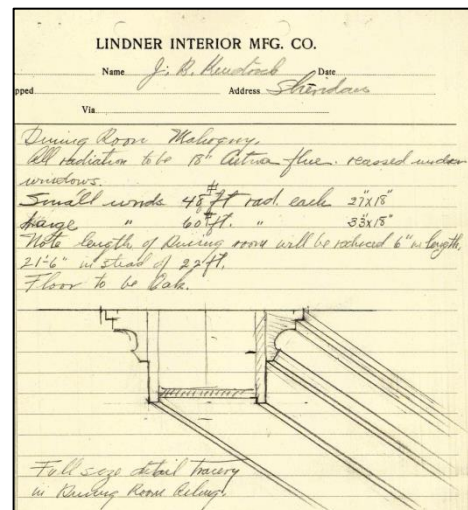 LINDNER INTERIOR MFG. CO.
Name J. B. Kendrick Date
pped Address Sheridan
Via
Dining Room Mahogny.
All radiation to be 18" flue. recessed under
windows.
Small winds 48 #ft rad. each 27"x18"
Large " 60 #ft. " 33"x18"
Note length of Dining room will be reduced 6" in length,
21'-6" in stead of 22 ft.
Floor to be Oak.
Full size detail tracery
in Dining Room Ceiling.